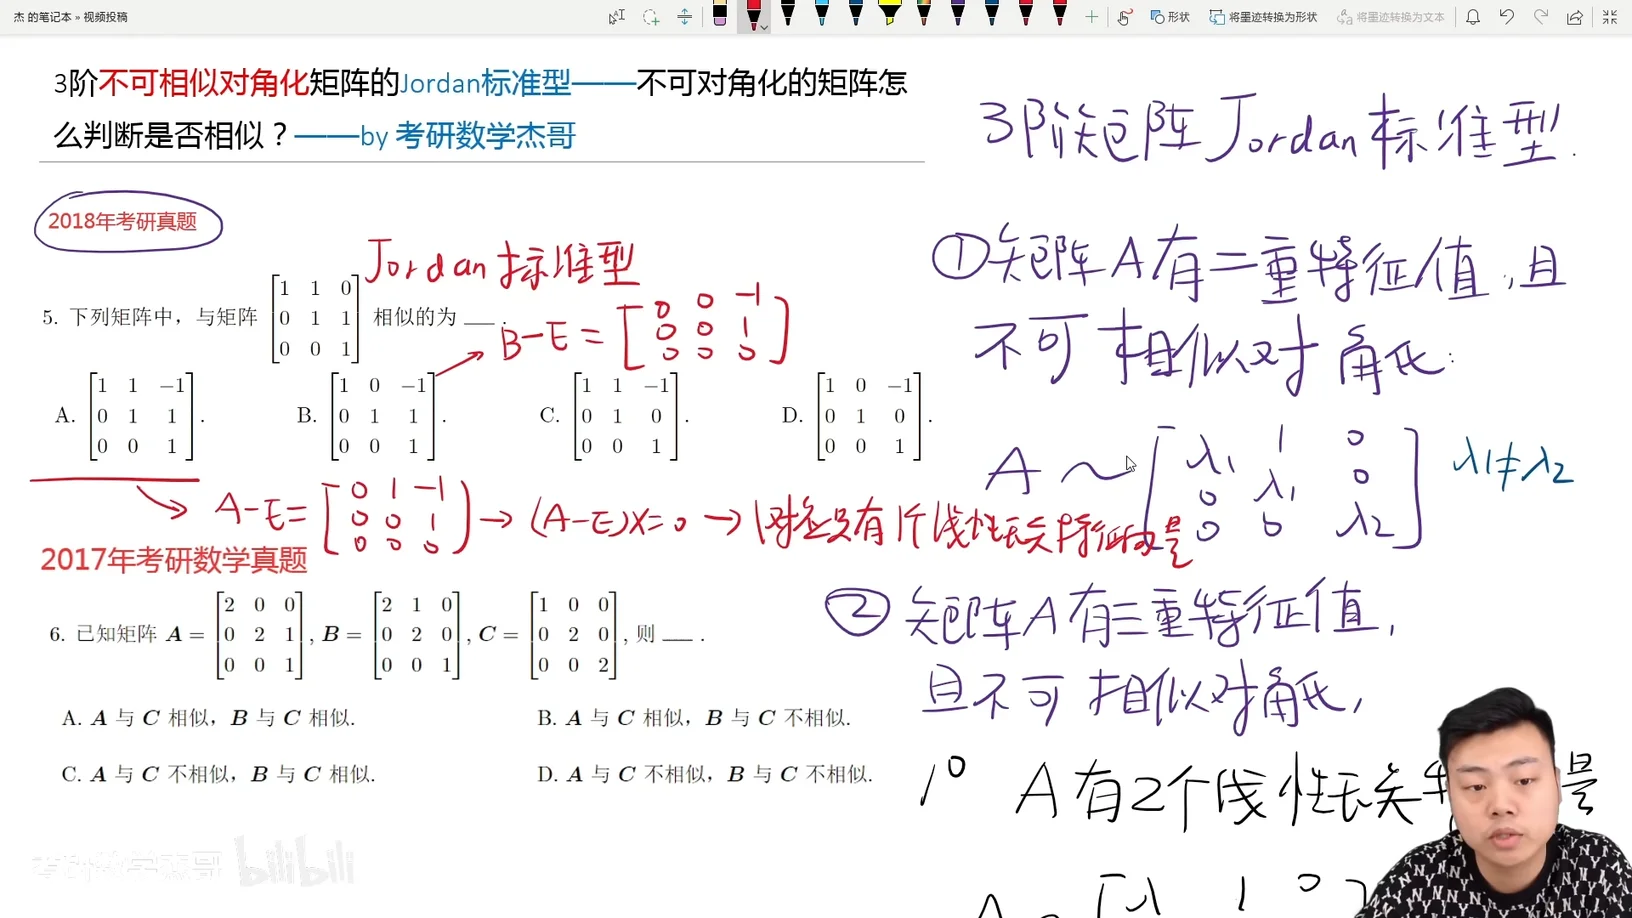 杰 的笔记本 » 视频投稿
形状
将墨迹转换为形状
将墨迹转换为文本
3阶不可相似对角化矩阵的Jordan标准型——不可对角化的矩阵怎
么判断是否相似？——by 考研数学杰哥
2018年考研真题
Jordan 标准型
5. 下列矩阵中，与矩阵 [1 1 0; 0 1 1; 0 0 1] 相似的为 ___ .
B-E = [0 0 -1; 0 0 1; 0 0 0]
A. [1 1 −1; 0 1 1; 0 0 1].
B. [1 0 −1; 0 1 1; 0 0 1].
C. [1 1 −1; 0 1 0; 0 0 1].
D. [1 0 −1; 0 1 0; 0 0 1].
A-E = [0 1 -1; 0 0 1; 0 0 0] → (A-E)X=0 → 只有1个线性无关特征向量
2017年考研数学真题
6. 已知矩阵 A = [2 0 0; 0 2 1; 0 0 1], B = [2 1 0; 0 2 0; 0 0 1], C = [1 0 0; 0 2 0; 0 0 2], 则 ___ .
A. A 与 C 相似，B 与 C 相似.
B. A 与 C 相似，B 与 C 不相似.
C. A 与 C 不相似，B 与 C 相似.
D. A 与 C 不相似，B 与 C 不相似.
考研数学杰哥 bilibili
3阶矩阵Jordan标准型.
①矩阵A有二重特征值，且
不可相似对角化:
A ~ [λ1 1 0; 0 λ1 0; 0 0 λ2] λ1≠λ2
② 矩阵A有三重特征值，
且不可相似对角化，
1° A有2个线性无关